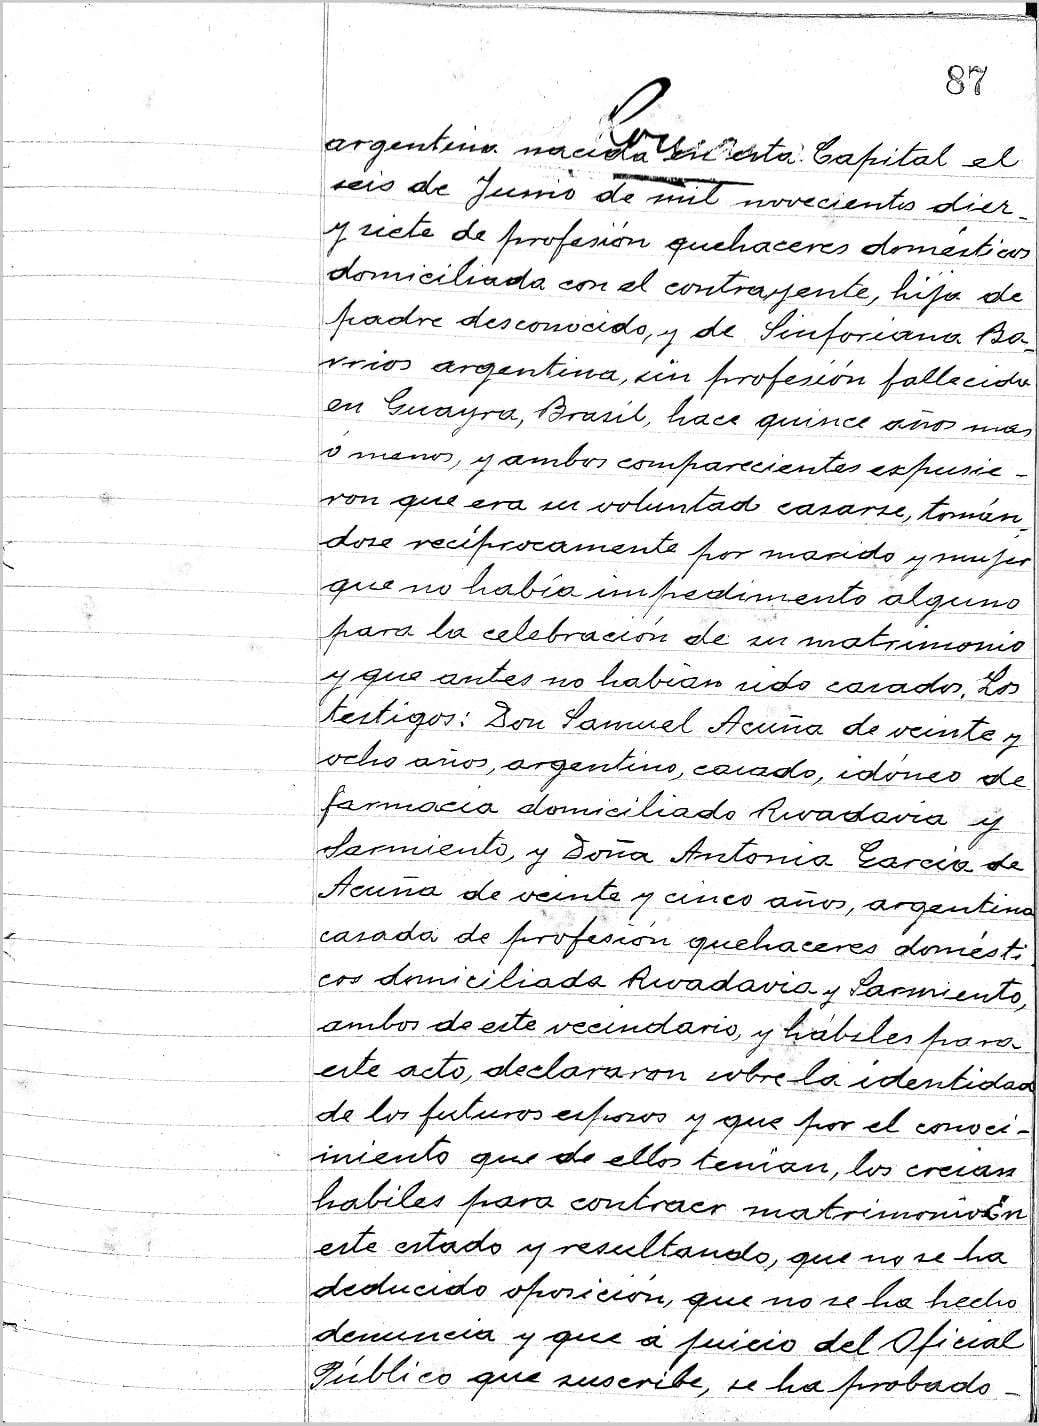 87
argentina nacida en esta Capital el
seis de Junio de mil novecientos diez
y siete de profesión quehaceres domésticos
domiciliada con el contrayente, hija de
padre desconocido, y de Sinforiana Ba-
rrios argentina, sin profesión fallecida
en Guayra, Brasil, hace quince años mas
ó menos, y ambos comparecientes expusie-
ron que era su voluntad casarse, tomán-
dose recíprocamente por marido y mujer
que no había impedimento alguno
para la celebración de su matrimonio
y que antes no habían sido casados. Los
testigos: Don Samuel Acuña de veinte y
ocho años, argentino, casado, idóneo de
farmacia domiciliado Rivadavia y
Sarmiento, y Doña Antonia Garcia de
Acuña de veinte y cinco años, argentina
casada de profesión quehaceres domésti
cos domiciliada Rivadavia y Sarmiento,
ambos de este vecindario, y hábiles para
este acto, declararon sobre la identidad
de los futuros esposos y que por el conoci-
miento que de ellos tenían, los creian
habiles para contraer matrimonio En
este estado y resultando, que no se ha
deducido oposición, que no se ha hecho
denuncia y que á juicio del Oficial
Público que suscribe, se ha probado -